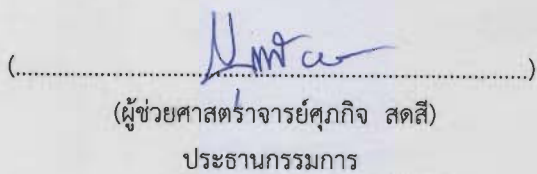 (....................................................................................)
(ผู้ช่วยศาสตราจารย์ศุภกิจ สดสี)
ประธานกรรมการ